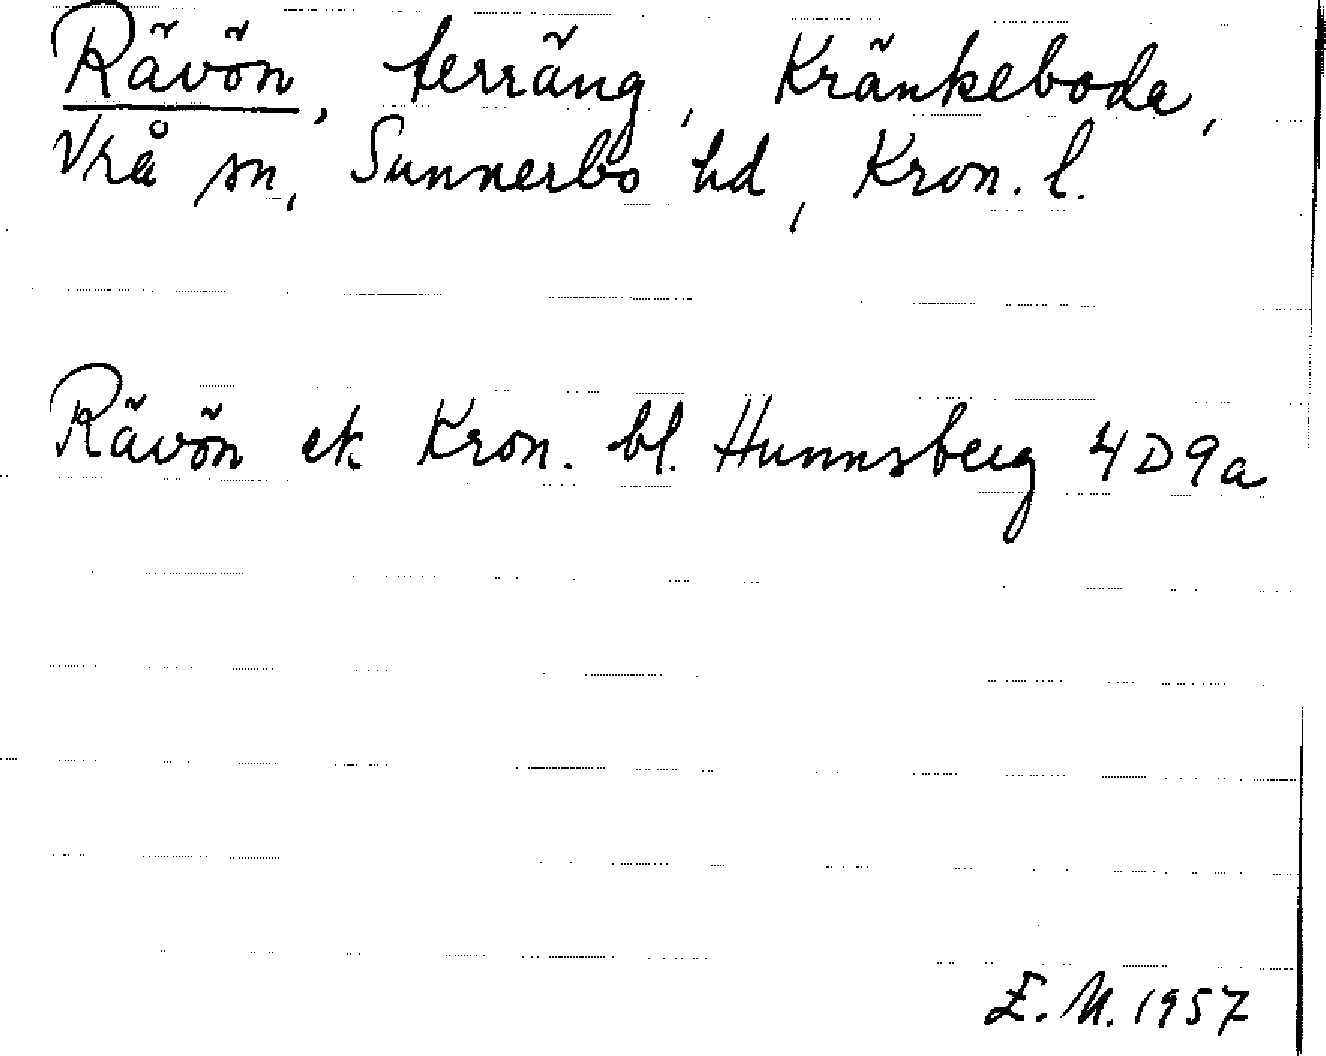 Rävön, terräng, Kränkeboda,
Vrå sn, Sunnerbo hd, Kron. l.
Rävön ek Kron. bl. Hunnsberg 4D9a
E. M. 1957